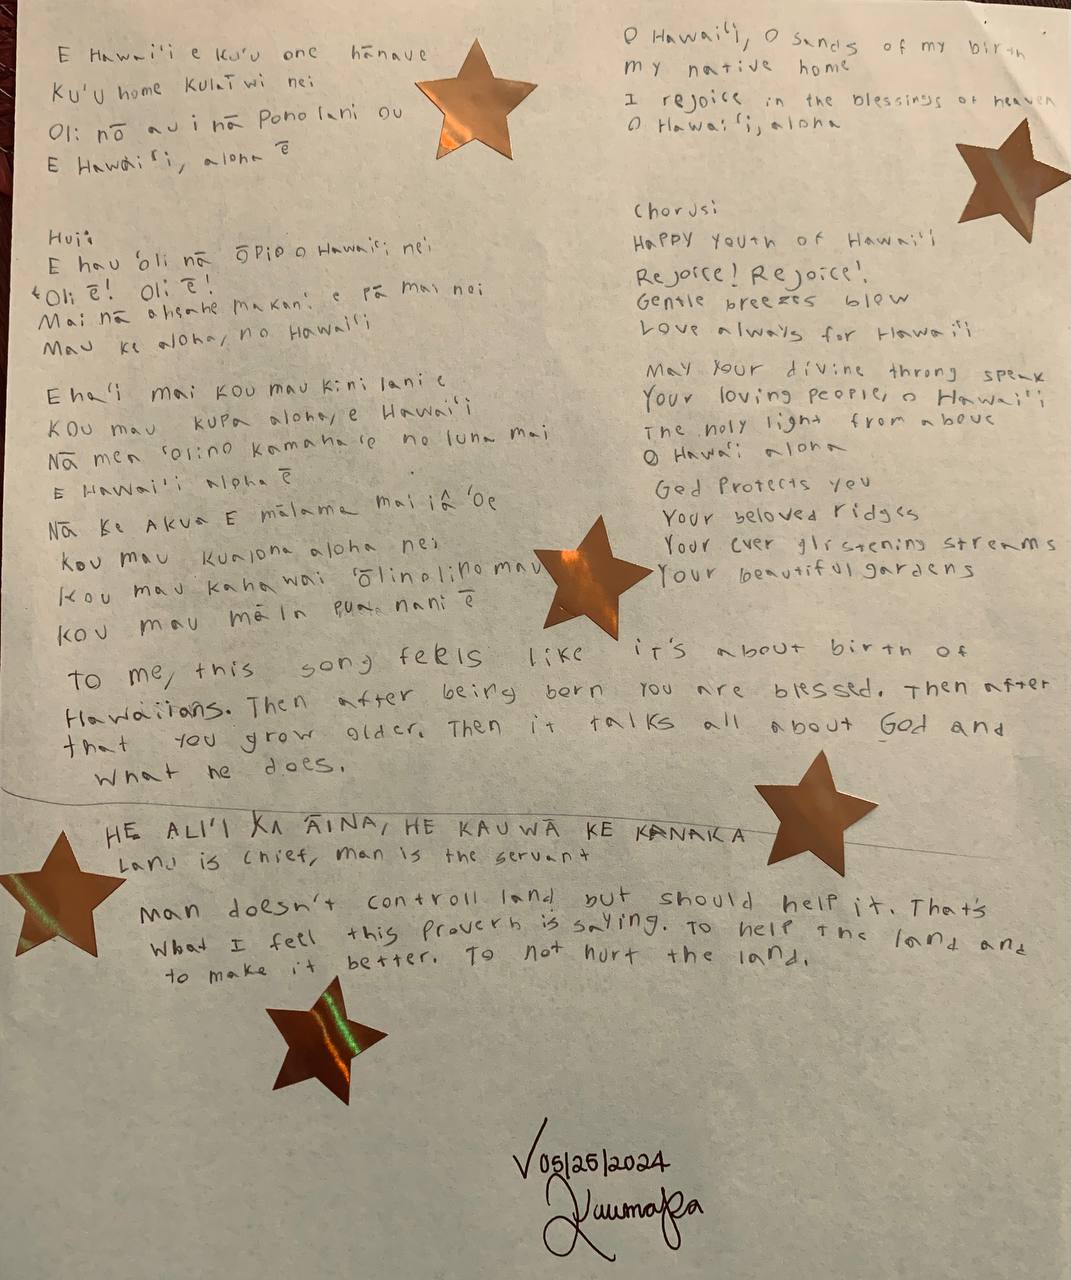 E Hawai'i e Ku'u one hānaue
Ku'u home Kulaīwi nei
Oli nō au i nā Pono lani ou
E Hawai'i, aloha ē
Hui:
E hau 'oli nā ōpio o Hawai'i nei
'Oli ē! Oli ē!
Mai nā aheahe makani e pā mai nei
Mau ke aloha, no Hawai'i
E ha'i mai kou mau kini lani e
Kou mau kupa aloha, e Hawai'i
Nā mea 'olino kamaha'e no luna mai
E Hawai'i aloha ē
Nā ke AKua E mālama mai iā 'oe
Kou mau kualona aloha nei
Kou mau kahawai 'ōlinolino mau
Kou mau māla pua nani ē
O Hawai'i, O sands of my birth
my native home
I rejoice in the blessings of heaven
O Hawai'i, aloha
Chorus:
Happy Youth of Hawai'i
Rejoice! Rejoice!
Gentle breezes blow
Love always for Hawai'i
May Your divine throng speak
Your loving people, o Hawai'i
The holy light from above
O Hawa'i aloha
God Protects you
Your beloved ridges
Your ever glistening streams
Your beautiful gardens
To me, this song feels like it's about birth of
Hawaiians. Then after being born you are blessed. Then after
that you grow older. Then it talks all about God and
what he does.
HE ALI'I KA ĀINA, HE KAUWĀ KE KANAKA
Land is chief, man is the servant
Man doesn't controll land but should help it. That's
what I feel this Proverb is saying. To help the land and
to make it better. To not hurt the land.
√ 05/25/2024